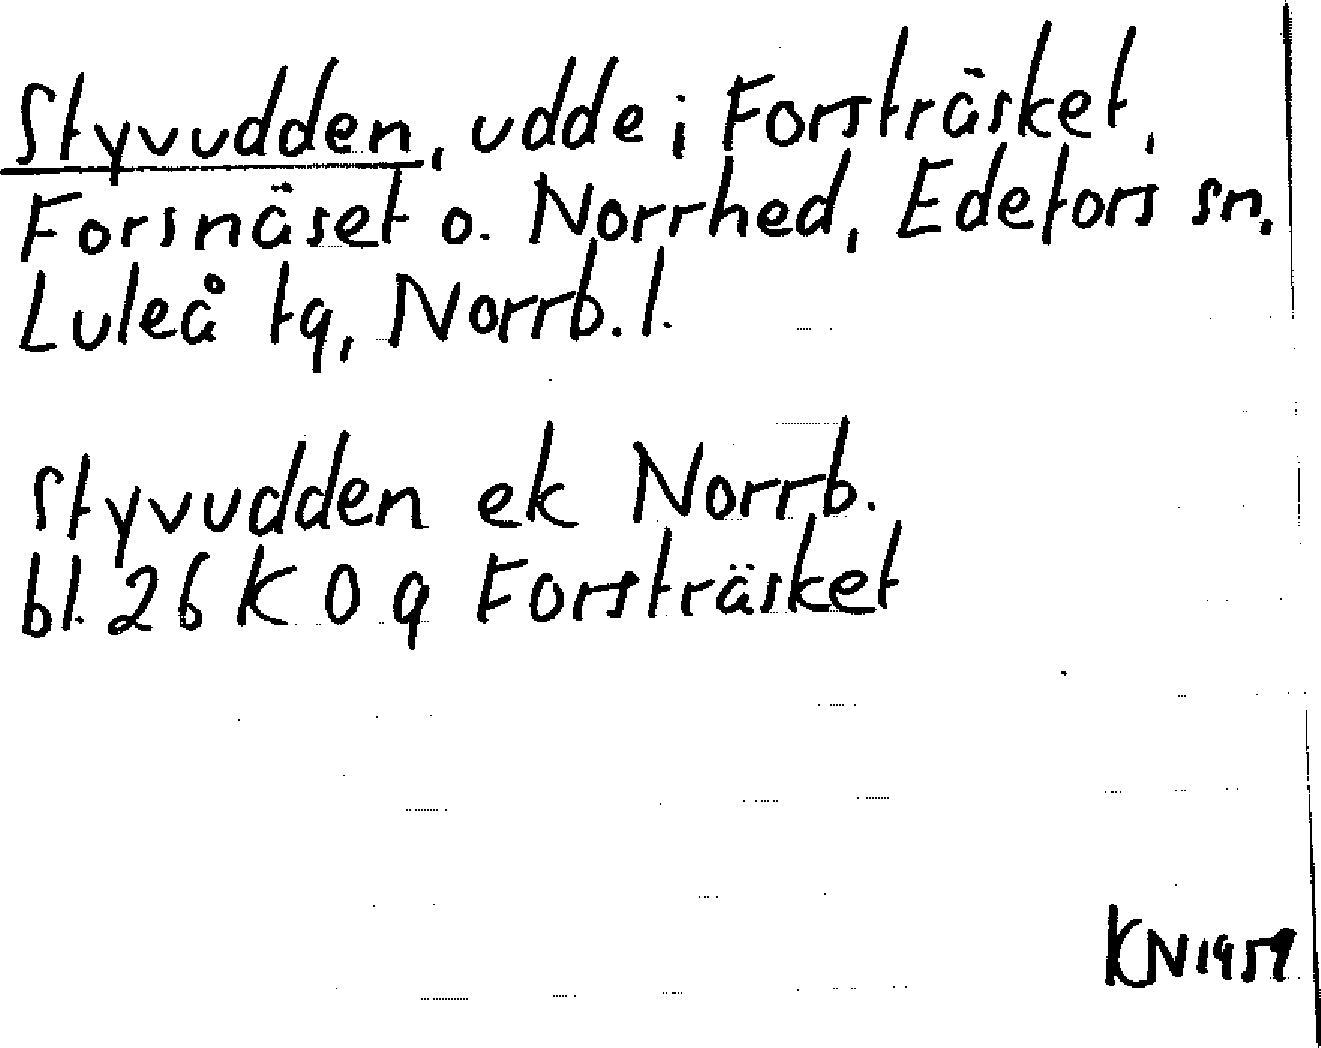 Styvudden, udde i Forsträsket,
Forsnäset o. Norrhed, Edefors sn.
Luleå tg, Norrb. l.
Styvudden ek Norrb.
bl. 26 K 0 g Forsträsket
KN 1959